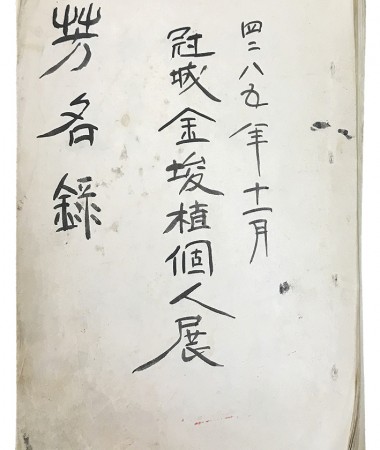 四二八五年十一月
冠城金埈植個人展
芳名錄